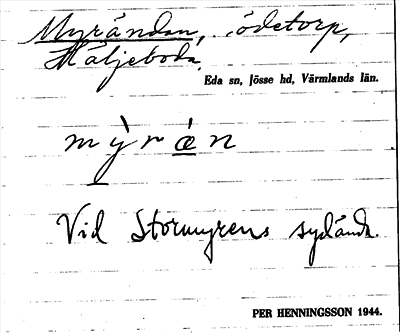 Myrändan, ödetorp,
Häljeboda,
Eda sn, Jösse hd, Värmlands län.
mỳræ̀n
Vid Stormyrens sydända.
PER HENNINGSSON 1944.